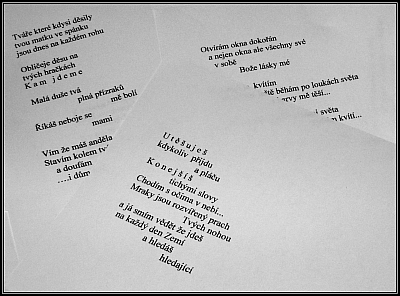 Tváře které kdysi děsily
tvou matku ve spánku
jsou dnes na každém rohu
Obličeje děsu na
tvých hračkách
K a m j d e m e
Malá duše tvá
plná přízraků
mě bolí
Říkáš neboj se
mami
Vím že máš anděla
Stavím kolem
a doufám
....i dům
Otvírám okna dokořán
a nejen okna ale všechny své
v sobě
Bože lásky mé
kvítím
ště běhám po loukách světa
arvy mě těší...
í světa
m kvítí...
U t ě š u j e š
kdykoliv přijdu
a pláču
K o n e j š í š
tichými slovy
Chodím s očima v nebi...
Mraky jsou rozvířený prach
Tvých nohou
a já smím vědět že jdeš
na každý den Zemí
a hledáš
hledající